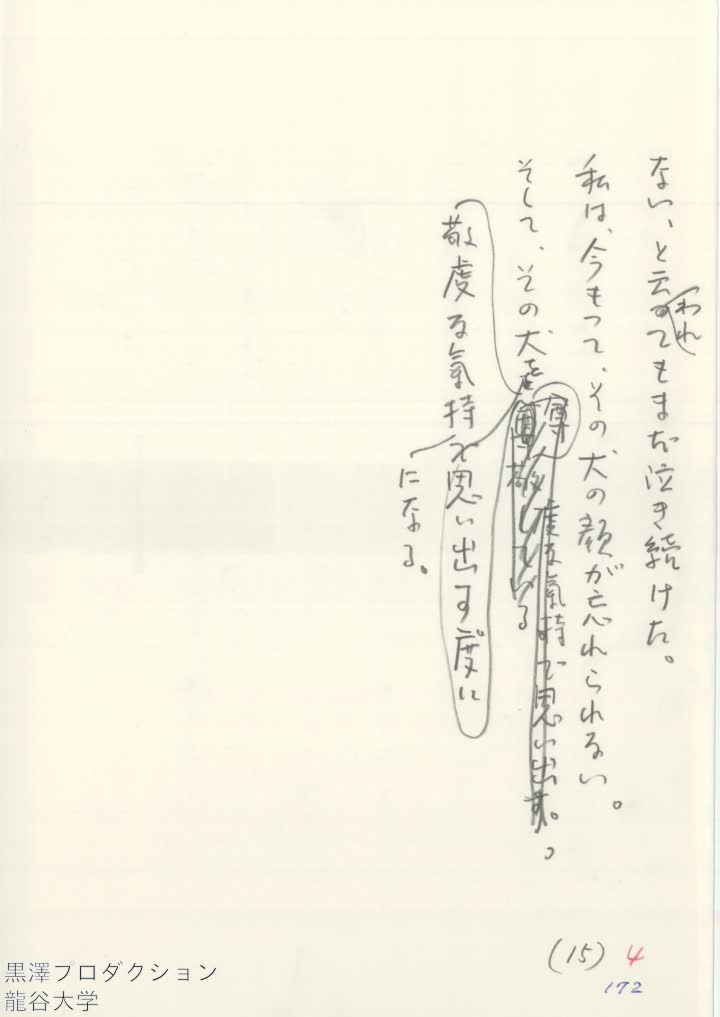 ない、と云ってもまだ泣き続けた。
われ
私は、今もって、その犬の顔が忘れられない。
そして、その犬を
尊敬している
虔な気持で思い出す。
敬虔な氣持
を思い出す度に
になる。
(15) 4
172
黒澤プロダクション
龍谷大学